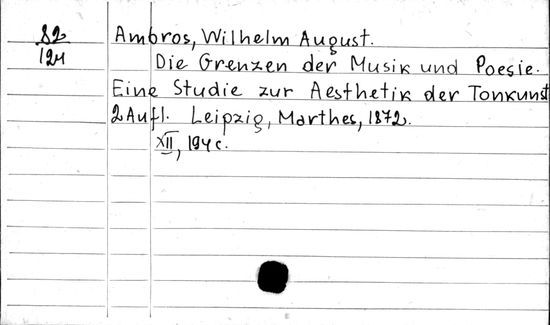 82
124
Ambros, Wilhelm August.
Die Grenzen der Musik und Poesie.
Eine Studie zur Aesthetik der Tonkunst
2 Aufl. Leipzig, Marthes, 1872.
XII, 194 c.